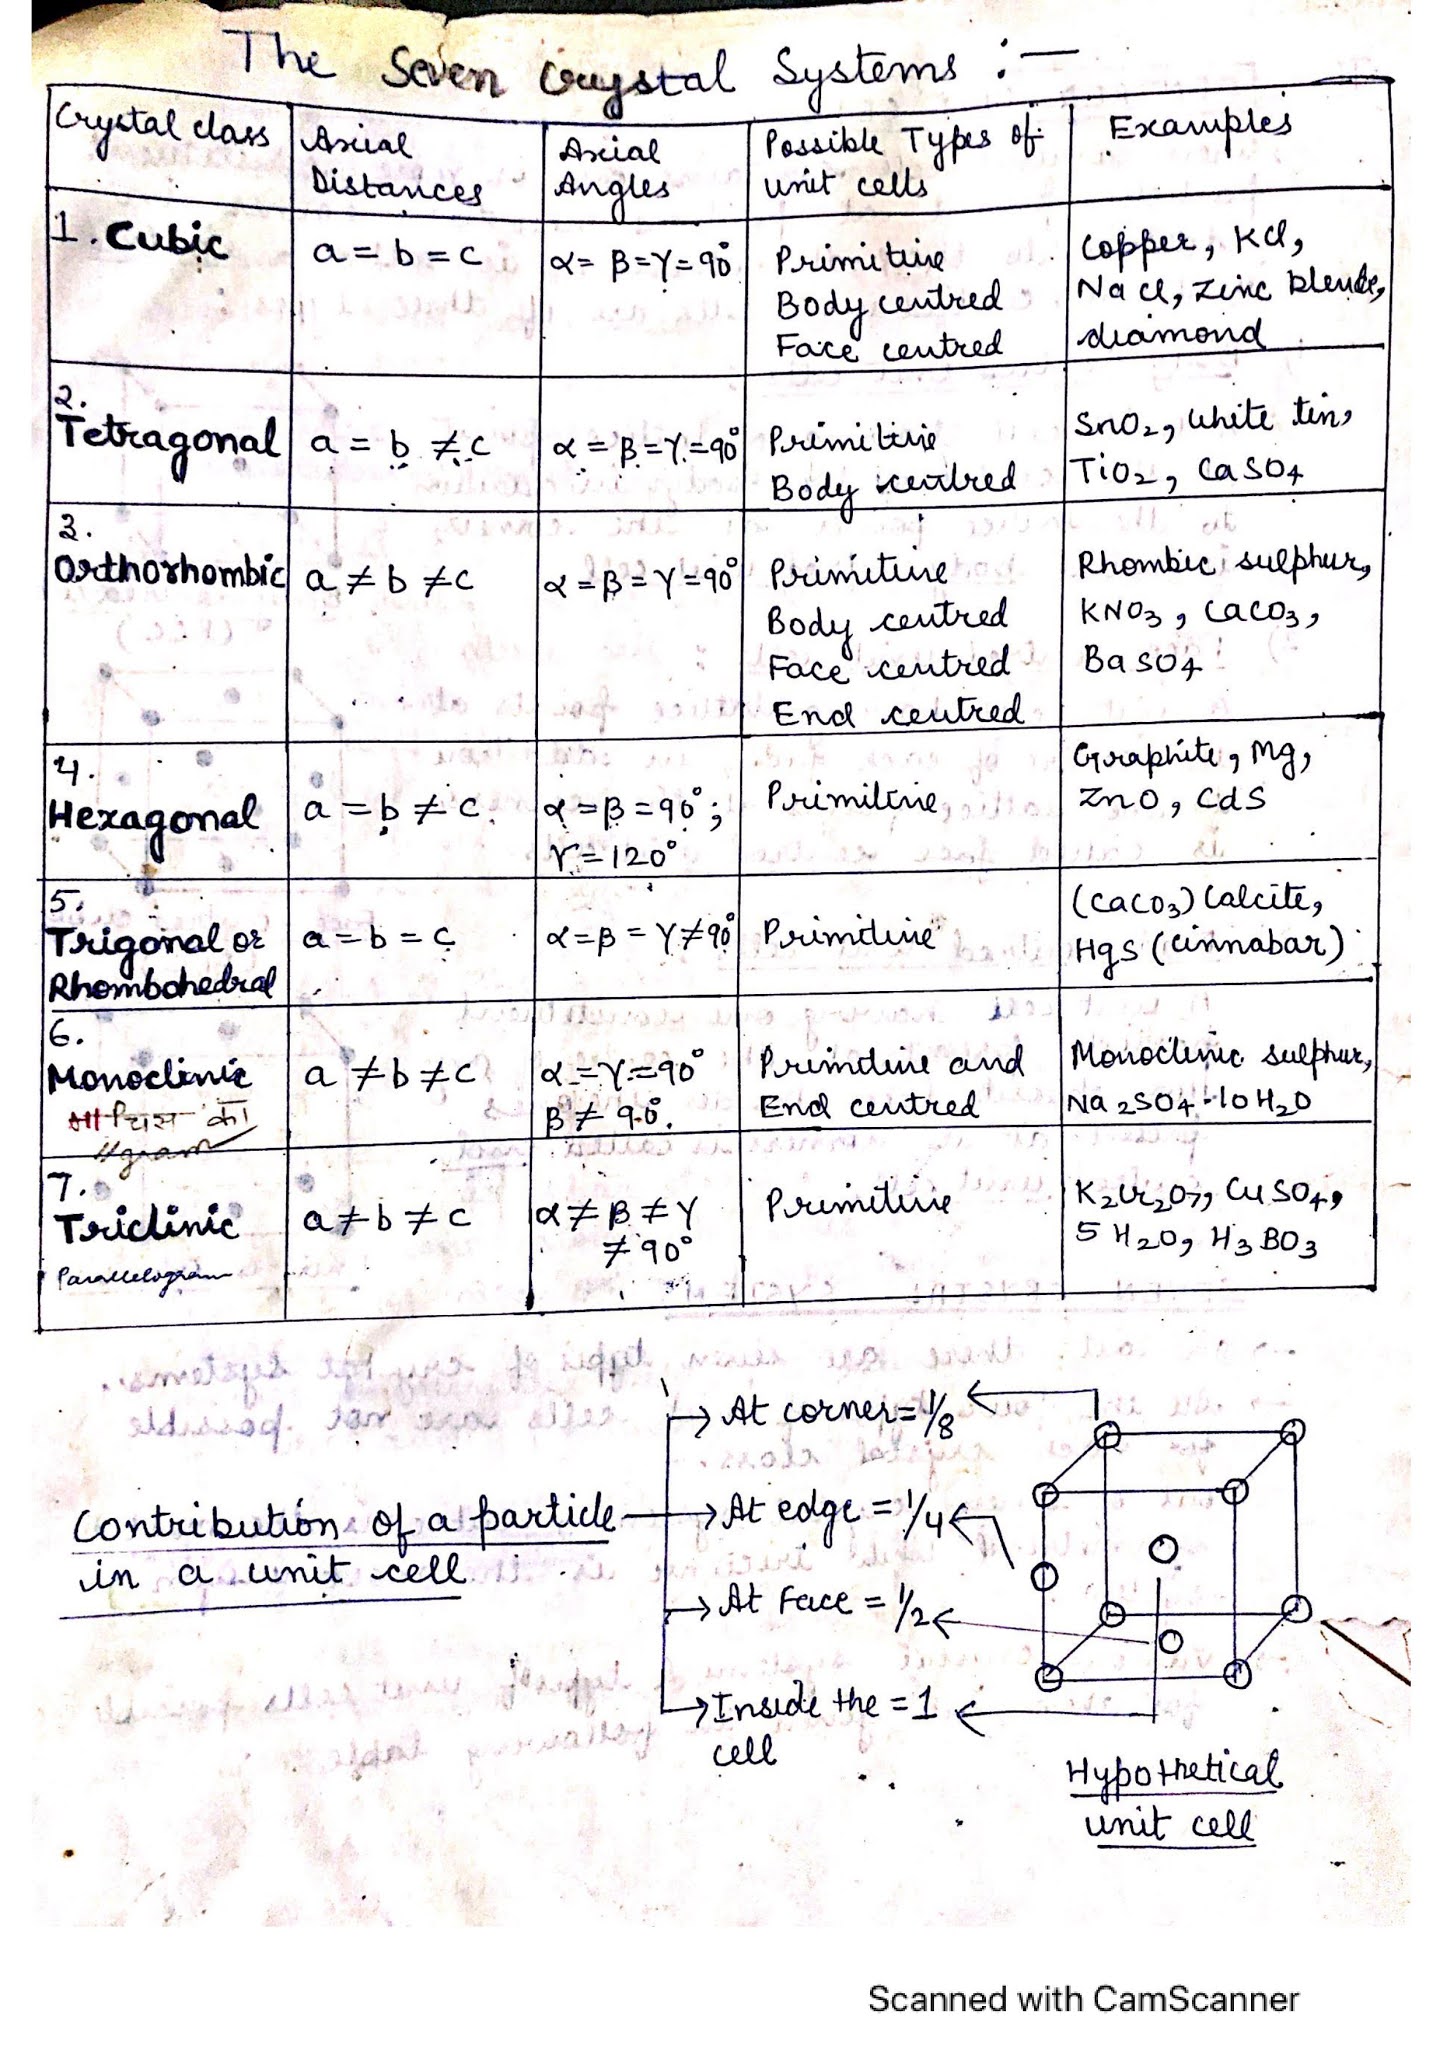 The Seven Crystal Systems :—
Crystal class
Axial
Distances
Axial
Angles
Possible Types of
unit cells
Examples
1. Cubic
a = b = c
α = β = γ = 90°
Primitive
Body centred
Face centred
Copper, KCl,
NaCl, Zinc blende,
diamond
2.
Tetragonal
a = b ≠ c
α = β = γ = 90°
Primitive
Body centred
SnO₂, White tin,
TiO₂, CaSO₄
3.
Orthorhombic
a ≠ b ≠ c
α = β = γ = 90°
Primitive
Body centred
Face centred
End centred
Rhombic sulphur,
KNO₃, CaCO₃,
BaSO₄
4.
Hexagonal
a = b ≠ c
α = β = 90°;
γ = 120°
Primitive
Graphite, Mg,
ZnO, CdS
5.
Trigonal or
Rhombohedral
a = b = c
α = β = γ ≠ 90°
Primitive
(CaCO₃) Calcite,
HgS (Cinnabar)
6.
Monoclinic
का
gram
a ≠ b ≠ c
α = γ = 90°
β ≠ 90°.
Primitive and
End centred
Monoclinic sulphur,
Na₂SO₄·10H₂O
7.
Triclinic
Parallelogram
a ≠ b ≠ c
α ≠ β ≠ γ
≠ 90°
Primitive
K₂Cr₂O₇, CuSO₄,
5 H₂O, H₃BO₃
Contribution of a particle
in a unit cell
→ At corner = 1/8
→ At edge = 1/4
→ At Face = 1/2
→ Inside the = 1
cell
Hypothetical
unit cell
Scanned with CamScanner